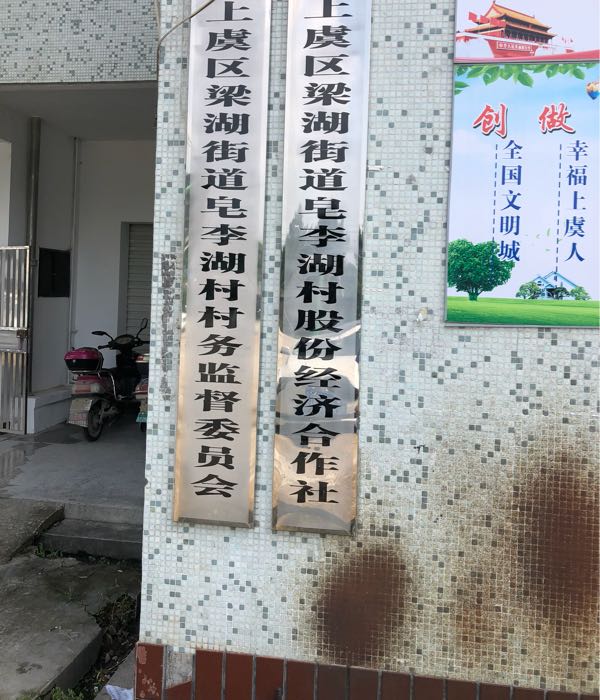 上虞区梁湖街道皂李湖村村务监督委员会
上虞区梁湖街道皂李湖村股份经济合作社
创 做
幸福上虞人
全国文明城